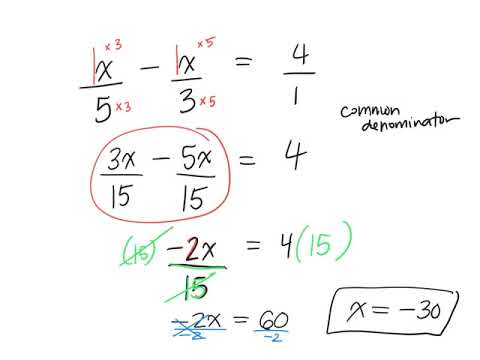 1x ×3 / 5 ×3 − 1x ×5 / 3 ×5 = 4 / 1
common
denominator
3x / 15 − 5x / 15 = 4
(15) −2x / 15 = 4(15)
−2x / −2 = 60 / −2
x = −30